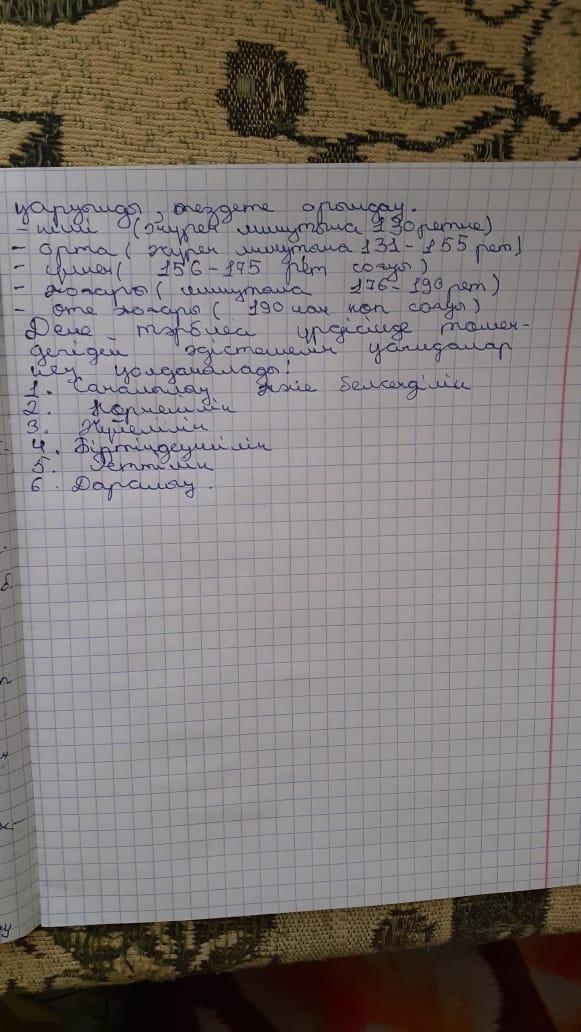 қаруынды, тездете орындау.
- кіші (жүрек минутына 130 ретке)
- орта (жүрек минутына 131 - 155 рет)
- үлкен ( 156 - 175 рет соғуы)
- жоғары ( минутына 176 - 190 рет)
- өте жоғары ( 190 нан көп соғуы)
Дене тәрбиесі үрдісінде төмен-
дегідей әдістемелік қағидалар
кең қолданылады:
1. Саналылау және белсенділік
2. Көрнекілік
3. Жүйелілік
4. Біртіндеушілік
5. Реттілік
6. Даралау.